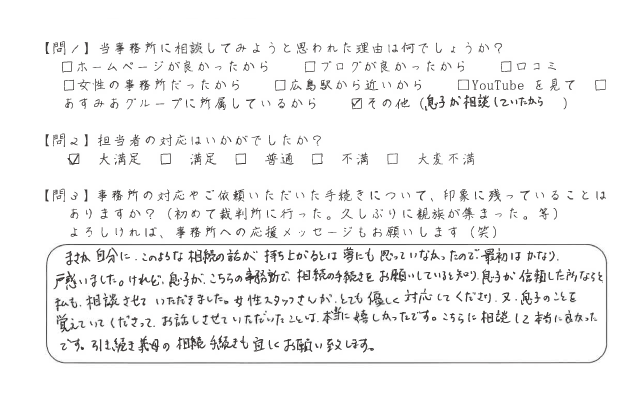 【問1】当事務所に相談してみようと思われた理由は何でしょうか？
□ホームページが良かったから □ブログが良かったから □口コミ
□女性の事務所だったから □広島駅から近いから □YouTube を見て □
あすみあグループに所属しているから ☑その他（息子が相談していたから ）
【問2】担当者の対応はいかがでしたか？
☑ 大満足 □ 満足 □ 普通 □ 不満 □ 大変不満
【問3】事務所の対応やご依頼いただいた手続きについて、印象に残っていることは
ありますか？（初めて裁判所に行った。久しぶりに親族が集まった。等）
よろしければ、事務所への応援メッセージもお願いします（笑）
まさか、自分に、このような相続の話が持ち上がるとは夢にも思っていなかったので、最初はかなり、
戸惑いました。けれど、息子が、こちらの事務所で、相続の手続きをお願いしていると知り、息子が信頼した所ならと
私も、相談させていただきました。女性スタッフさんが、とても優しく対応してくださり、又、息子のことを
覚えていてくださって、お話しさせていただいたことは、本当に嬉しかったです。こちらに相談して本当に良かった
です。引き続き義母の相続手続きも宜しくお願い致します。